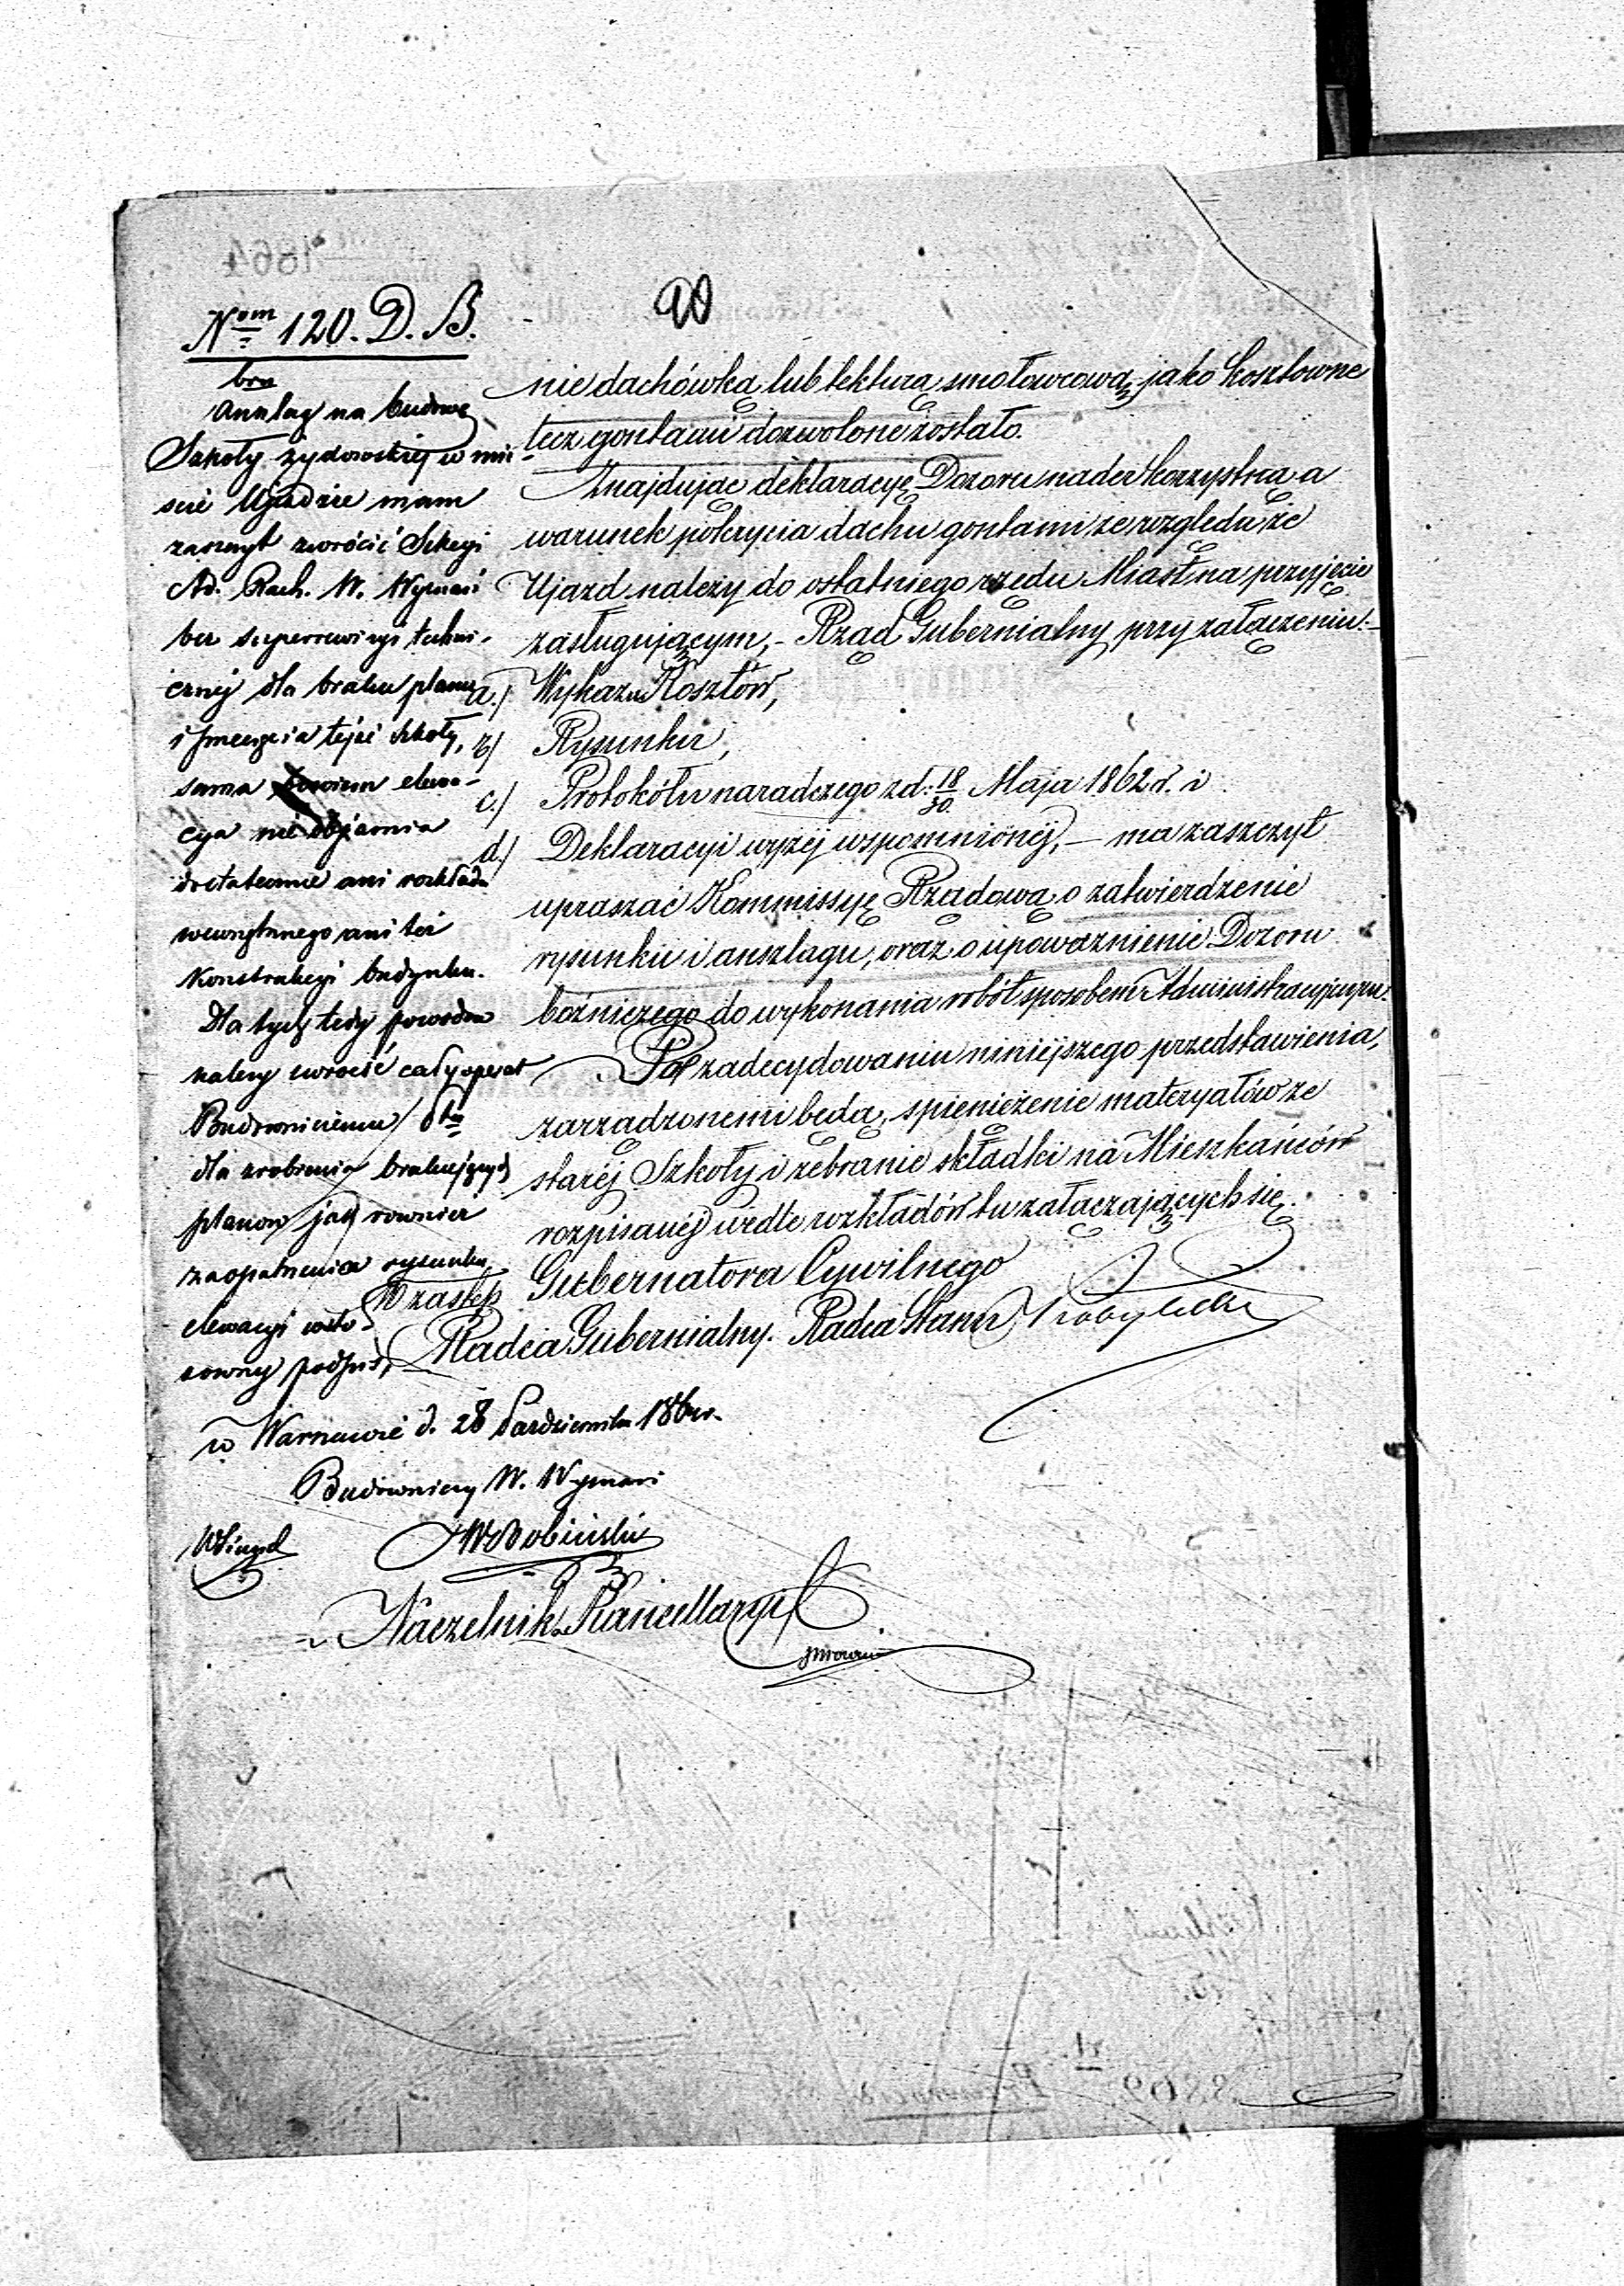 N<sup>om</sup> 120. D. B.
bra
Anszlag na budowę
Szkoły żydowskiej w mie
ście Ujeździe mam
zaszczyt zwrócić Sekcyi
Ad. Rach. W. Wyznań
bez superrewizyi techni-
cznej dla braku planu
i przecięcia tejże szkoły,
sama bowiem elewa-
cya nie objaśnia
dostatecznie ani rozkładu
wewnętrznego ani też
konstrukcyi budynku.
Dla tych tedy powodów
należy zwrócić cały operat
Budowniczemu Ptu
dla zrobienia brakujących
planów jak rownież
zaopatrzenia rysunku
elewacyi w sto-
sowny podpis,
w Warszawie d. 28 Października 186 r.
Budowniczy W. Wyznań
nie dachówką lub tekturą smołowcową jako kosztowne
lecz gontami dozwolone zostało.
Znajdując deklaracyę Dozoru nader korzystną a
warunek pokrycia dachu gontami ze względu że
Ujazd należy do ostatniego rzędu Miast na przyjęcie
zasługującym, – Rząd Gubernialny przy załączeniu:
a.) Wykazu Kosztów,
b) Rysunku,
c.) Protokółu naradczego z d: 18/30 Maja 1862 r. i
d.) Deklaracyi wyżej wspomnionej, – ma zaszczyt
upraszać Kommissyę Rządową o zatwierdzenie
rysunku i anszlagu, oraz o upoważnienie Dozoru
bóżniczego do wykonania robót sposobem Administracyjnym.
Po zadecydowaniu niniejszego przedstawienia,
zarządzonemi będą, spieniężenie materyałów ze
starej Szkoły i zebranie składki na Mieszkańców
rozpisanej wedle rozkładów tu załączających się.
w zastęp. Gubernatora Cywilnego
Radca Gubernialny. Radca Stanu
Naczelnik Kancellaryi